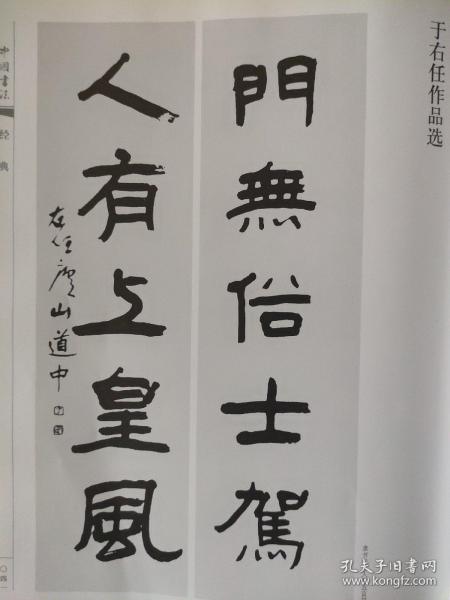 于右任作品选
門無俗士駕
人有上皇風
右任廬山道中
中國書法
经典
〇四一
孔夫子旧书网